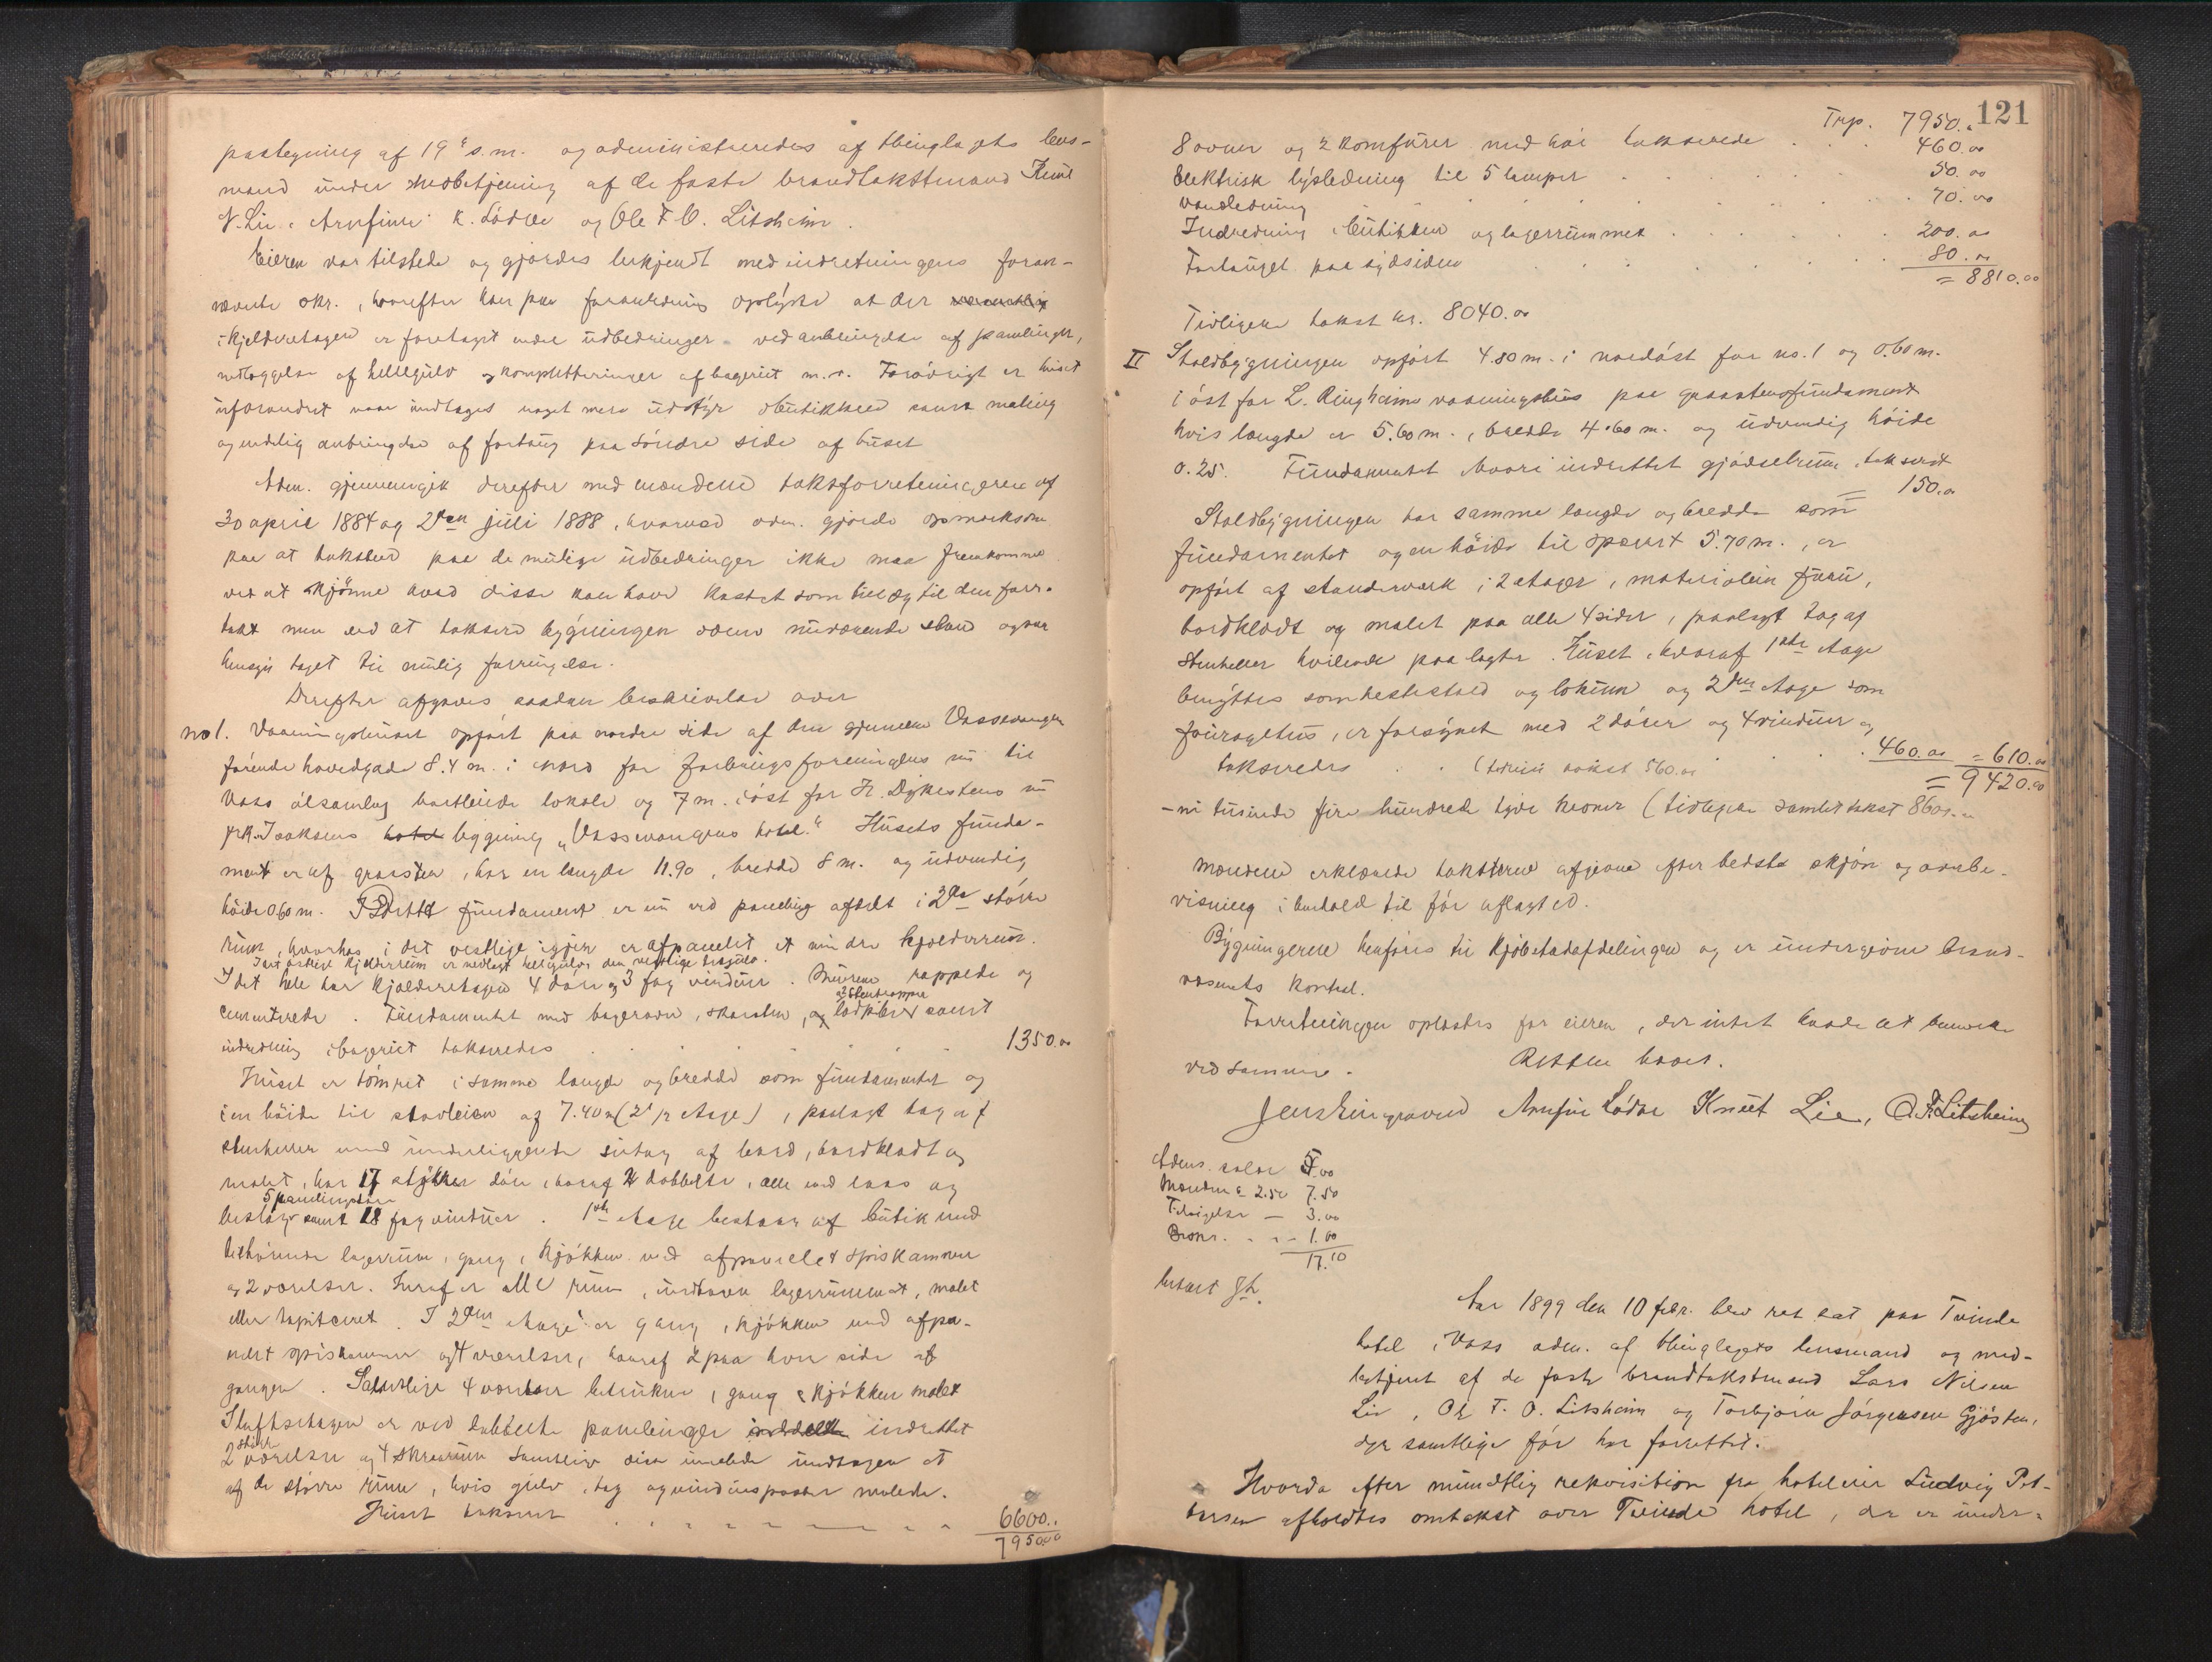 paategning af 19 s.m. og administreredes af thinglagets lens-
mand under medbetjening af de faste brandtakstmænd Knut
N. Lie, Arnfinn K. Lødve og Ole F. O. Litsheim.
Eieren var tilstede og gjordes bekjendt med indretningens foran-
nævnte skr., hvorefter han paa foranledning oplyste at der
i kjelderetagen er foretaget endel udbedringer ved anbringelse af panelinger,
nedlæggelse af hellegulv og kompletteringer af bageriet m.v. Forøvrigt er huset
uforandret naar undtages noget mere udstyr i butikken samt maling
og endelig anbringelse af fortaug paa søndre side af huset
Adm. gjennemgik derefter med mændene takstforretningerne af
30 april 1884 og 2den juli 1888, hvorved adm. gjorde opmærksom
paa at taksten paa de mulige udbedringer ikke maa fremkomme
ved at skjønne hvad disse kan have kostet som tillæg til den forr.
takst men ved at taksere bygningen i dens nuværende stand og
hensyn taget til mulig forringelse.
Derefter afgaves saadan beskrivelse over
no 1. Vaaningshuset opført paa nordre side af den gjennem Vossevangen
førende hovedgade 8.4 m. i nord for forbrugsforeningens nu til
Voss ølsamlag bortleiede lokale og 7 m. i øst for H. Dykestens nu
frk. Isaksens bygning "Vossevangens hotel." Husets funda-
ment er af graasten, har en længde 11.90, bredde 8 m. og udvendig
høide 0.60 m. I dette fundament er nu ved paneling afdelt i 2de større
rum, hvorhos i det vestlige igjen er afpanelet et mindre kjelderrum.
I det østlige kjelderrum er nedlagt hellegulv i den vestlige trægulv.
I det hele har kjelderetagen 4 døre og 3 fag vinduer. Murene rappede og
cementerede. Fundamentet med bagerovn, skorsten, og 2 stentrapper samt
indredning i bageriet takseredes . . . . . . . 1350.00
Huset er tømret i samme længde og bredde som fundamentet og
i en høide til stavleien af 7.40 m (2 1/2 etage), paalagt tag af
stenheller med underliggende sutag af bord, bordklædt og
malet, har 17 stykker døre, hvoraf 2 dobbelte, alle med laas og
5 panelingsdøre
beslag samt 18 fag vinduer. 1ste etage bestaar af butik med
tilhørende lagerrum, gang, kjøkken med afpanelet spiskammer
og 2 værelser. Heraf er alle rum, undtagen lagerrummet, malet
eller tapitceret. I 2den etage er gang, kjøkken med afpa-
nelet spiskammer og 4 værelser, hvoraf 2 paa hver side af
gangen. Samtlige 4 værelser betrukne, gang & kjøkken malet
I loftsetagen er ved dobbelte panelinger indrettet
2 større værelser og 4 skraarum samtlige disse umalede undtagen et
af de større rum, hvis gulv, tag og vinduesposter malede.
Huset takseret . . . . . . . . 6600..
7950.00
121
Trp. 7950..
8 ovner og 2 komfurer med rør takserede . . . 460.00
Elektrisk lysledning til 5 lamper . . . . . 50.00
Vandledning . . . . . . 70.00
Indredning i butikken og lagerrummet . . . . . 200.00
Fortauget paa sydsiden . . . . . 80.00
= 8810.00
Tidligere takst kr. 8040.00
II Staldbygningen opført 4.80 m. i nordøst for no. 1 og 0.60 m.
i øst for L. Ringheims vaaningshus paa graastensfundament
hvis længde er 5.60 m., bredde 4.60 m. og udvendig høide
0.25. Fundamentet hvori indrettet gjødselrum, takseret
= 150.00
Staldbygningen har samme længde og bredde som
fundamentet og en høide til spærret 5.70 m., er
opført af standerværk i 2 etager, materialein furu,
bordklædt og malet paa alle 4 sider, paalagt tag af
stenheller hvilende paa lægter. Huset, hvoraf 1ste etage
benyttes som hestestald og lokum og 2den etage som
fouragehus, er forsynet med 2 døre og 4 vinduer og
takseredes . . (forrige takst 560.00 . . . 460.00 = 610.00
= 9420.00
- ni tusinde fire hundrede tyve kroner (tidligere samlet takst 8600.00
Mændene erklærede taksterne afgivne efter bedste skjøn og overbe-
visning i henhold til før aflagt ed.
Bygningerne henføres til kjøbstadafdelingen og er undergivne brand-
væsenets kontrol.
Forretningen oplæstes for eieren, der intet havde at bemærke
ved samme. Retten hævet.
Arnfin Lødve Knut Lie, O. F. Litsheim
Adms. salær 5.00
Mændene á 2.50 7.50
Tilsigelse — 3.00
1.60
17.10
betalt
Aar 1899 den 10 febr. blev ret sat paa Tvinde
hotel, Voss adm. af thinglagets lensmand og med-
betjent af de faste brandtakstmænd Lars Nilsen
Lie, Ole F. O. Litsheim og Torbjørn Jørgensen Gjøsten,
der samtlige før har forrettet.
Hvorda efter mundtlig rekvisition fra hoteleier Ludvig Pet-
tersen afholdtes omtakst over Tvinde hotel, der er under-